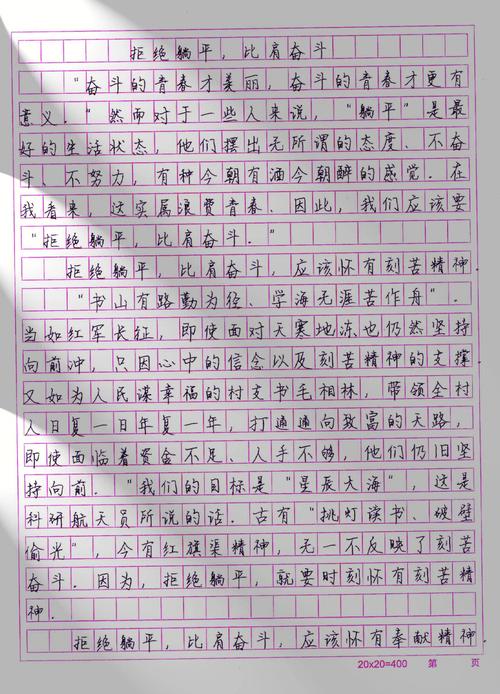 拒绝躺平，比肩奋斗
“奋斗的青春才美丽，奋斗的青春才更有
意义．”然而对于一些人来说，“躺平”是最
好的生活状态，他们摆出无所谓的态度、不奋
斗、不努力，有种今朝有酒今朝醉的感觉．在
我看来，这实属浪费青春、因此，我们应该要
“拒绝躺平，比肩奋斗．”
拒绝躺平，比肩奋斗，应该怀有刻苦精神．
“书山有路勤为径、学海无涯苦作舟”．
当如红军长征，即使面对天寒地冻也仍然坚持
向前冲，只因心中的信念以及刻苦精神的支撑
又如为人民谋幸福的村支书毛相林，带领全村
人日复一日年复一年，打通通向致富的天路，
即使面临着资金不足、人手不够，他们仍旧坚
持向前．“我们的目标是“星辰大海”，这是
科研航天员所说的话．古有“挑灯读书、破壁
偷光”，今有红旗渠精神，无一不反映了刻苦
奋斗．因为，拒绝躺平，就要时刻怀有刻苦精
神．
拒绝躺平，比肩奋斗，应该怀有奉献精神．
20x20=400 第 页